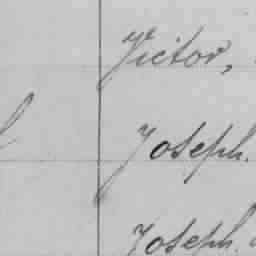 Victor,
Joseph.
Joseph.